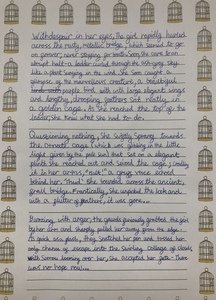 With despair in her eyes, the girl rapidly hurried
across the rusty, metallic bridge, which seemed to go
on forever; never stopping for breath. Soon, she came to an
abrupt halt. A ladder rose through the ash-grey sky
like a giant hanging in the wind. She soon caught a
glimpse of the marvellous creature, a beautiful
bird with large elegant wings
and lengthy, drooping feathers sat neatly in
a golden cage. As she reached the top of the
ladder, she knew what she had to do.
Questioning nothing, she swiftly sprang towards
the ornate cage (which was glowing in the little
light given by the pale sun) that sat on a elegant
plinth. She reached out and seized the cage; smiling
it in her arms, "NO!" a gruff voice echoed
behind her. Thud! She landed across the ancient,
frail bridge. Frantically, she unlocked the lock and
with a flutter of feathers, it was gone...
Burning with anger, the guards furiously grabbed the girl
by her arm and sharply pulled her away from the edge.
As quick as a flash, they snatched her pen and tossed her
only chance into the swirling collage of clouds.
With sorrow looming over her, she accepted her fate. There
was no hope now...